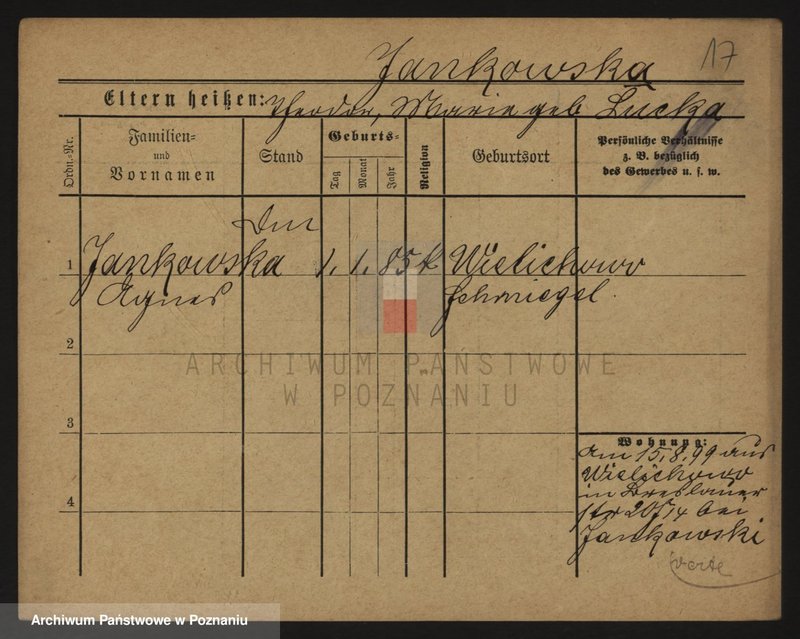 17
Jankowska
Eltern heißen: Theodor, Marie geb Lucka
Ordn.-Nr.
Familien- und Vornamen
Stand
Geburts-
Tag
Monat
Jahr
Religion
Geburtsort
Persönliche Verhältnisse
z. B. bezüglich
des Gewerbes u. s. w.
1 Jankowska 1. 1. 85 k Wielichowo
Agnes Schmiegel
2
ARCHIWUM PAŃSTWOWE
W POZNANIU
3
Wohnung:
am 15.8.99 aus
Wielichowo
in Breslauer
str bei
4
Jankowski
verte
Archiwum Państwowe w Poznaniu